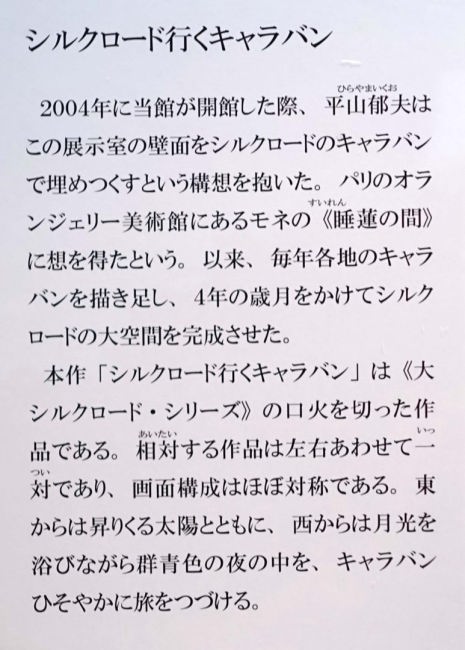 シルクロード行くキャラバン
2004年に当館が開館した際、平山郁夫は
ひらやまいくお
この展示室の壁面をシルクロードのキャラバン
で埋めつくすという構想を抱いた。パリのオラ
ンジェリー美術館にあるモネの《睡蓮の間》
すいれん
に想を得たという。以来、毎年各地のキャラ
バンを描き足し、4年の歳月をかけてシルク
ロードの大空間を完成させた。
本作「シルクロード行くキャラバン」は《大
シルクロード・シリーズ》の口火を切った作
品である。相対する作品は左右あわせて一
あいたい
いっ
対であり、画面構成はほぼ対称である。東
つい
からは昇りくる太陽とともに、西からは月光を
浴びながら群青色の夜の中を、キャラバン
ひそやかに旅をつづける。